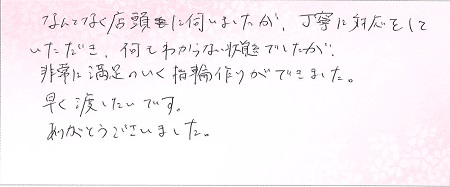 なんてなく店頭に伺いましたが、丁寧に対応をして
いただき、何もわからない状態でしたが、
非常に満足のいく指輪作りができました。
早く渡したいです。
ありがとうございました。